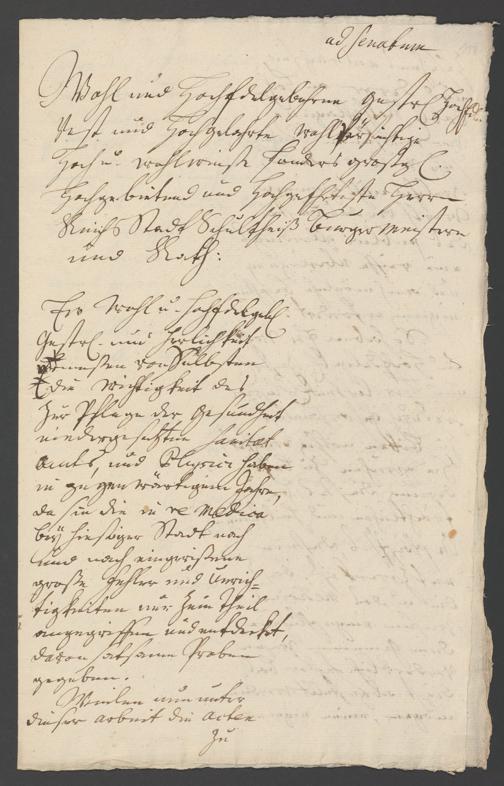 ad Senatum
Wohl und HochEdelgebohrne Gestr. 
Vest und Hochgelahrte wohlfürsichtige
Hoch u. wohlweise besonders großg.
Hochgebietend und Hochgeehrteste Herrn
Reichs Stadt Schultheiß Burgermeistere
und Rath:
Ew Wohl u. HochEdelgeb.
Gestr. und Herrlichkeit
ermessen von Selbsten
die Wichtigkeit des
Zur Pflege der Gesundheit
niedergesetzten Sanitæt
Amts, und Physici haben
in gegenwärtigem Jahre,
da sie die in re Medica
bey hiesiger Stadt nach
und nach eingerißene
große Fehler und Unrich-
tigkeiten nur zum Theil
angegriffen und entdecket,
davon sattsame Proben
gegeben.
Weilen nun unter
dieser arbeit die Acten
zu